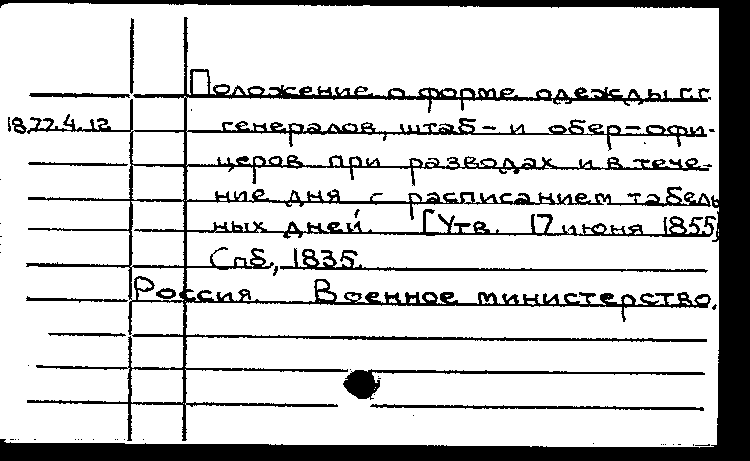 Положение о форме одежды г.г.
18.77.4.12 генералов, штаб- и обер-офи-
церов при разводах и в тече-
ние дня с расписанием табель
ных дней. [Утв. 17 июня 1855]
Спб., 1835.
Россия. Военное министерство.